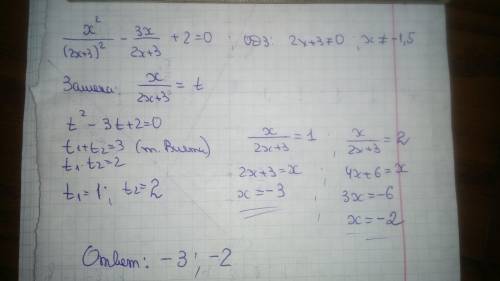 x²/(2x+3)² - 3x/(2x+3) + 2 = 0 ; ОДЗ: 2x+3≠0 ; x≠-1,5
Замена: x/(2x+3) = t
t² - 3t + 2 = 0
t₁+t₂=3 (т. Виета)
t₁·t₂=2
t₁=1 ; t₂=2
x/(2x+3) = 1 ; x/(2x+3) = 2
2x+3=x ; 4x+6=x
x=-3 ; 3x=-6
x=-2
Ответ: -3 ; -2